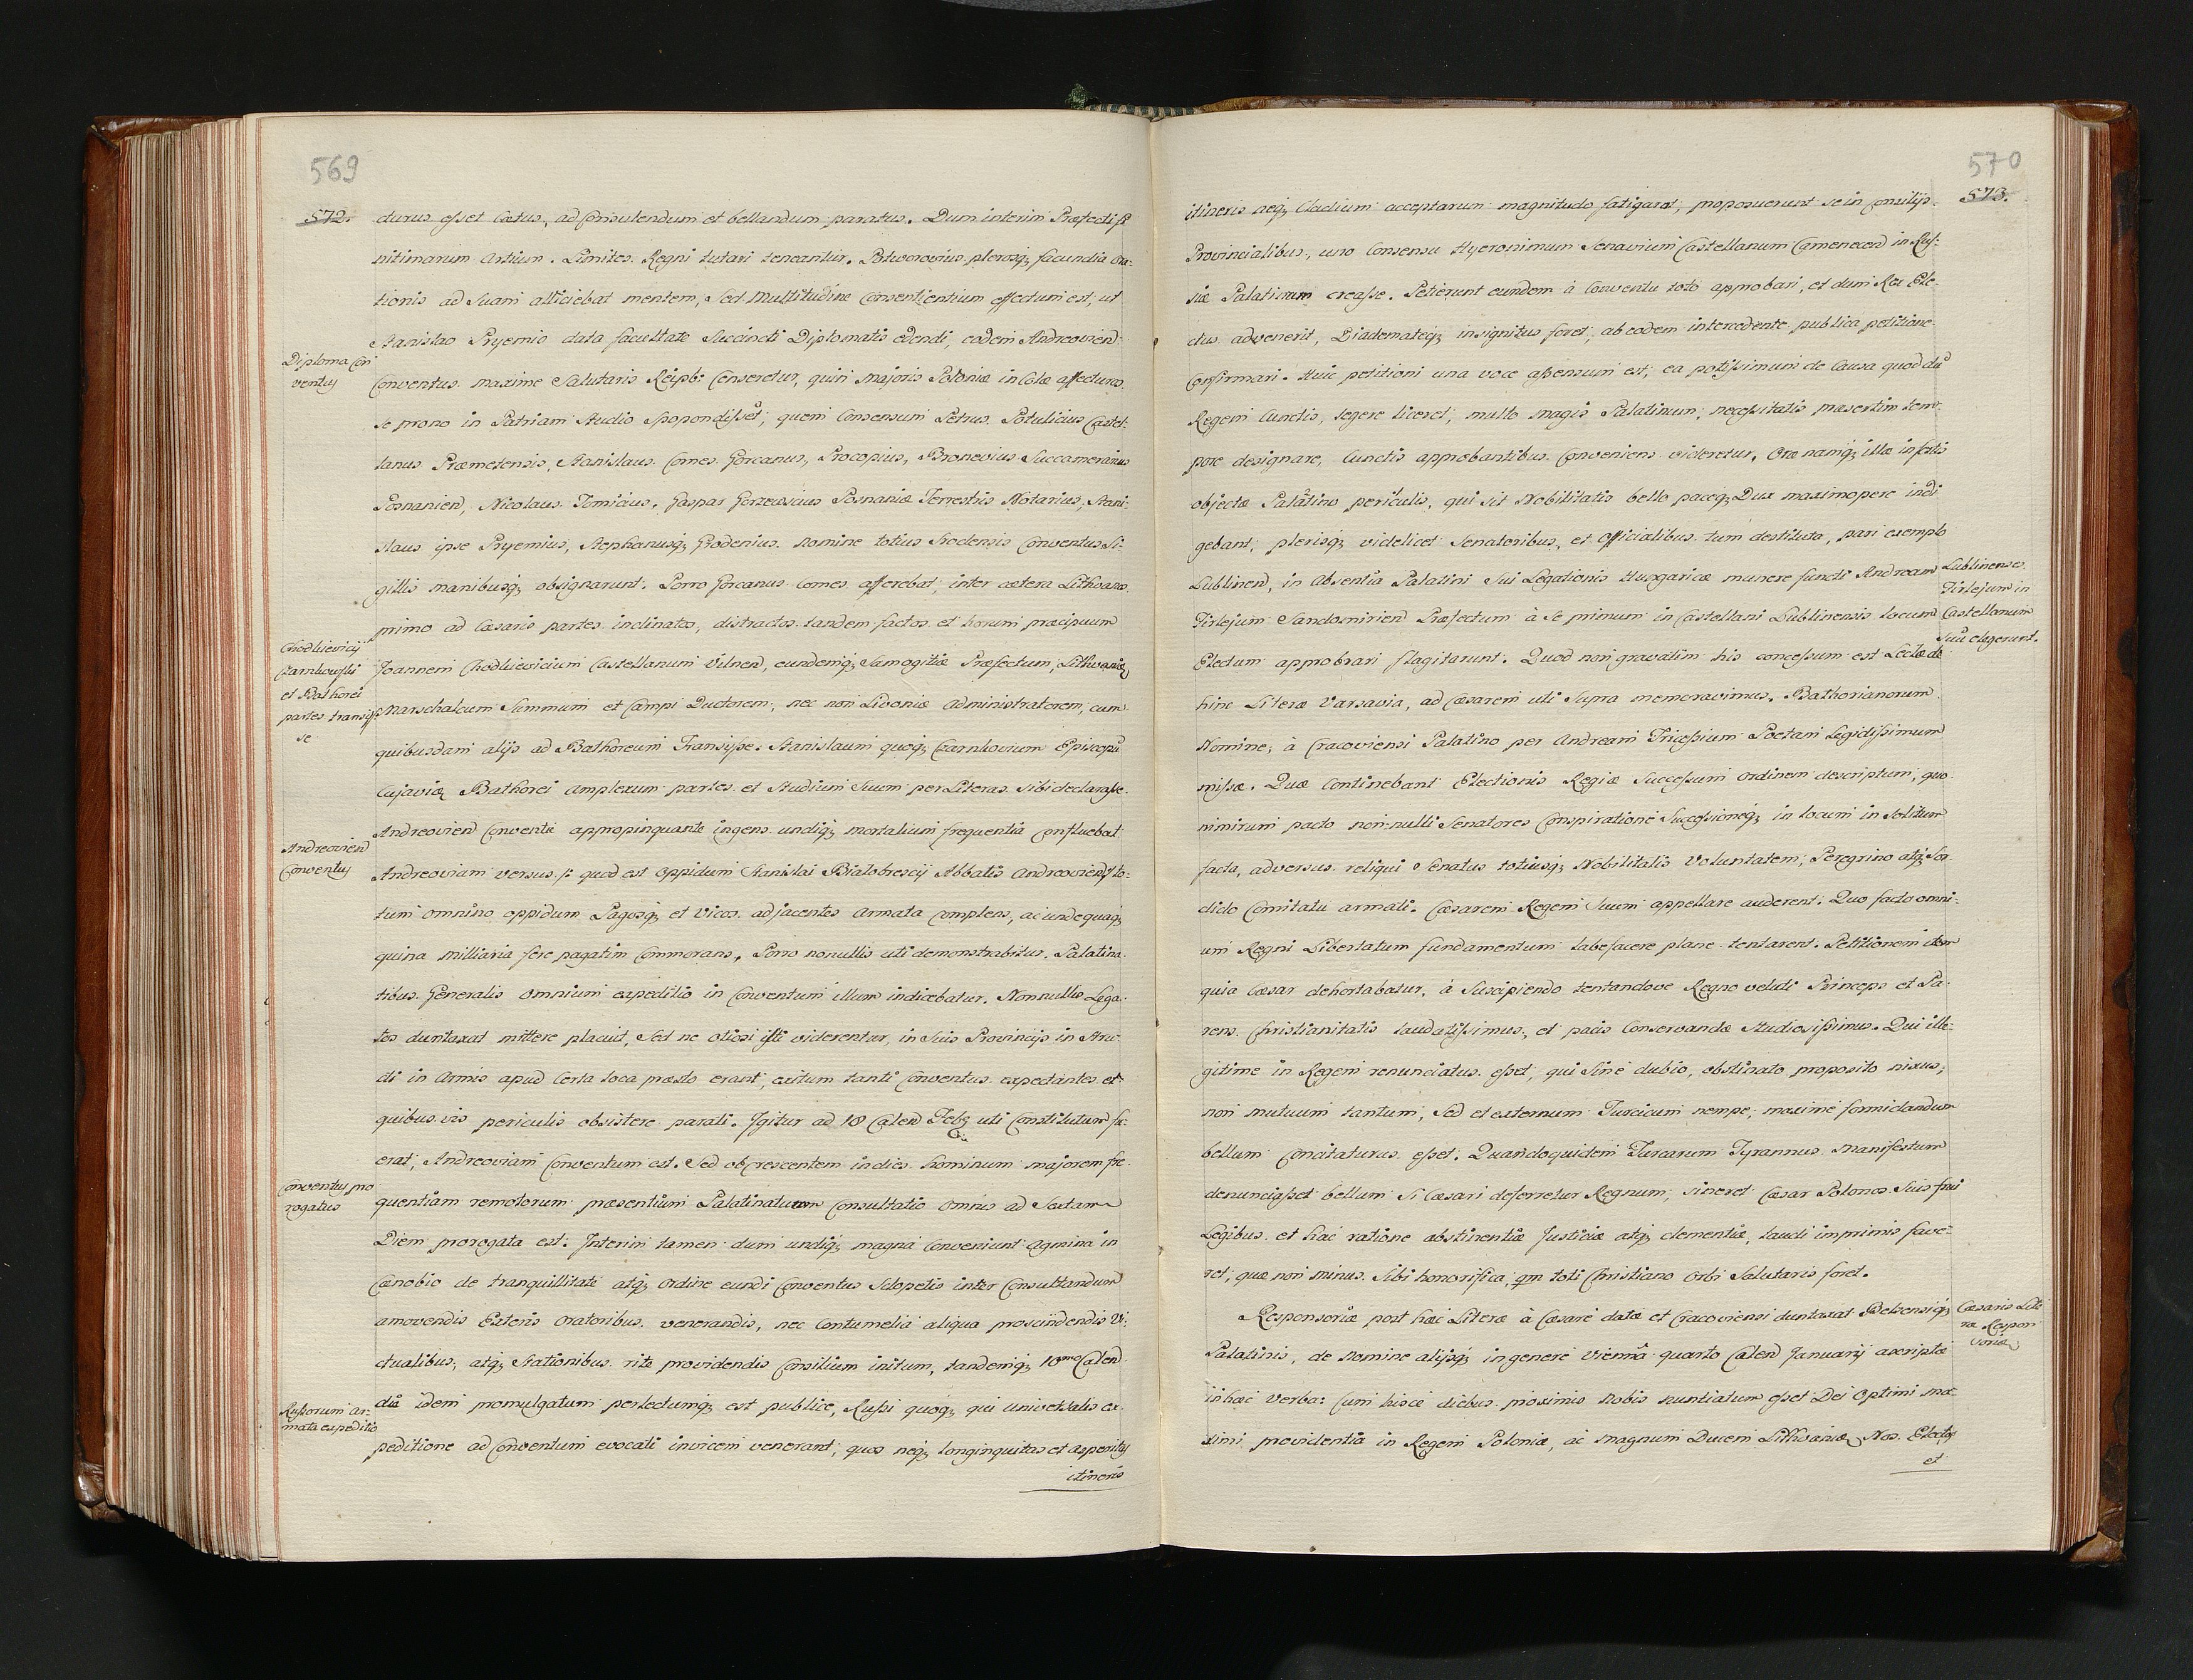 569
572.
durus esset Cœtus, ad Consulendum et bellandum paratus. Dum interim Præfecti fi
nitimarum Artium. Limites Regni tutari teneantur. Potworovius plerosq; facundia Ora-
tionis ad Suam alliciebat mentem, Sed Multitudine Consentientium effectum est, ut
Stanislao Pryemio data facultate Succincti Diplomatis edendi, eadem Andreovien
Diploma Con
ventus
Conventus maxime Salutaris Reipb: Censeretur, quin Majoris Poloniæ incolæ affecturos
se prono in Patriam Studio Spopondisset; quem Consensum Petrus Potulicius Castel-
lanus Præmetensis, Stanislaus Comes Gorcanus, Procopius, Bronevius Succamerarius
Posnanien, Nicolaus Tomicius, Gaspar Gerzewscius Posnaniæ Terrestris Notarius, Stani-
slaus ipse Pryemius, Stephanusq; Grodenius nomine totius Srodensis Conventus Si-
gillis manibusq; obsignarunt. Porro Gorcanus Comes asserebat, inter cætera Lithvanos
primo ad Cæsaris partes inclinatos, distractos tandem factos et horum præcipuum
Chodkievicij
Czarnkovski
et Bathorei
partes transis
se
Joannem Chodkievicium Castellanum Vilnen, eundemq; Samogitiæ Præfectum, Lithvaniæ
Marschalcum Summum et Campi Ductorem, nec non Livoniæ Administratorem, cum
quibusdam alijs ad Bathoreum Transisse. Stanislaum quoq; Czarnkovium Episcopu
Cujaviæ Bathorei amplexum partes et Studium Suum per Literas sibi declarasse.
Andreovien
Conventus
Andreovien Conventu appropinquante ingens undiq; mortalium frequentia Confluebat
Andreoviam versus /: quod est oppidum Stanislai Bialobrescij Abbatis Andreovien :/ to-
tum omnino oppidum Pagosq; et Vicos adjacentes Armata Complens, ac undequaq;
quina milliaria fere pagatim Commorans, Porro nonullis uti demonstrabitur. Palatina
tibus Generalis omnium expeditio in Conventum illum indicebatur. Nonnullis Lega-
tos duntaxat mittere placuit, Sed ne otiosi isti viderentur, in Suis Provincijs in Stru-
cti in Armis apud Certa loca præsto erant, exitum tanti Conventus expectantes et
quibus vis periculis obsistere parati. Igitur ad 18 Calen Feb; uti Constitutum fu-
erat, Andreoviam Conventum est. Sed ob Crescentem indies hominum majorem fre-
Conventus pro
rogatus
quentiam remotorum præsentium Palatinatuum Consultatio omnis ad Sextam
Diem prorogata est. Interim tamen dum undiq; magna Conveniunt Agmina in
Cœnobio de tranquillitate atq; Ordine eundi Conventus Sclopetis inter Consultandum
amovendis Exteris Oratoribus venerandis, nec Contumelia aliqua proscindendis Vi-
ctualibus, atq; Stationibus rite providendis Consilium initum, tandemq; 10mo Calen
Russorum Ar-
mata expeditio
dia idem promulgatum perlectumq; est publice, Russi quoq; qui universalis ex-
peditione ad Conventum evocati invicem venerant, quos neq; longinquitas et Asperitas
itineris
570
573.
itineris neq; Cladium acceptarum magnitudo fatigarat, proposuerunt se in Consilijs
Provincialibus, uno Consensu Hyeronimum Senavium Castellanum Camenecen in Rus-
siæ Palatinum creasse. Petierunt eundem à Conventu toto approbari, et dum Rex Ele-
ctus advenerit, Diademateq; insignitus foret, ab eodem intercedente publica petitione
Confirmari. Huic petitioni una voce assensum est, ea potissimum de Causa quod du
Regem Cunctis, legere liceret, multo magis Palatinum, necessitatis præsertim tem-
pore designare, Cunctis approbantibus Conveniens videretur. Oræ namq; illæ infestis
objectæ Palatino periculis, qui sit Nobilitatis bello paceq; Dux maximopere indi
gebant, plerisq; videlicet Senatoribus, et Officialibus tum destituta, pari exemplo
Lublinen, in Absentia Palatini Sui Legationis Hungaricæ munere functi Andream
Lublinenses
Firlejum in
Castellanum
Suu elegerunt.
Firlejum Sandomirien Præfectum à Se primum in Castellani Lublinensis locum
Electum approbrari flagitarunt. Quod non gravatim his concessum est Lectæ de
hinc Literæ Varsavia, ad Cæsarem uti Supra memoravimus, Bathorianorum
Nomine, à Cracoviensi Palatino per Andream Tricessium Poetam Legidissimum
missæ. Quæ Continebant Electionis Regiæ Successum Ordinem descriptum, quo
nimirum pacto non-nulli Senatores Conspiratione Successioneq; in locum in solitum
facta, adversus reliqui Senatus totiusq; Nobilitatis Voluntatem, Peregrino atq; Sor-
dido Comitatu armati. Cæsarem Regem Suum appellare auderent. Quo facto omni-
um Regni Libertatum fundamentum labefacere plane tentarent. Petitionem item
quia Cæsar dehortabatur, à Suscipiendo tentandove Regno veluti Princeps et Pa-
rens Christianitatis laudatissimus, et pacis Conservandæ Studiosissimus. Qui ille-
gitime in Regem renunciatus esset, qui Sine dubio, obstinato proposito nixus,
non mutuum tantum, Sed et externum Turcicum nempe, maxime formidandum
bellum Concitaturus esset. Quandoquidem Turcarum Tyrannus Manifestum
denunciasset bellum Si Cæsari deferretur Regnum, sineret Cæsar Polonos Suis frui
Legibus et hac ratione abstinentiæ Justiciæ atq; clementiæ, laudi imprimis fave-
ret, quæ non minus Sibi honorifica, qm toti Christiano Orbi Salutaris foret.
Responsoriæ post hæc Literæ à Cæsare datæ et Cracoviensi duntaxat Belzensiq;
Cæsaris Lite
ræ Respon
soriæ
Palatinis, de Nomine alijsq; in genere Vienna quarto Calen Januarij ascriptæ
in hæc Verba: Cum hisce diebus proximis Nobis nuntiatum esset Dei Optimi Ma-
ximi providentia in Regem Poloniæ, ac Magnum Ducem Lithvaniæ Nos Electos
et